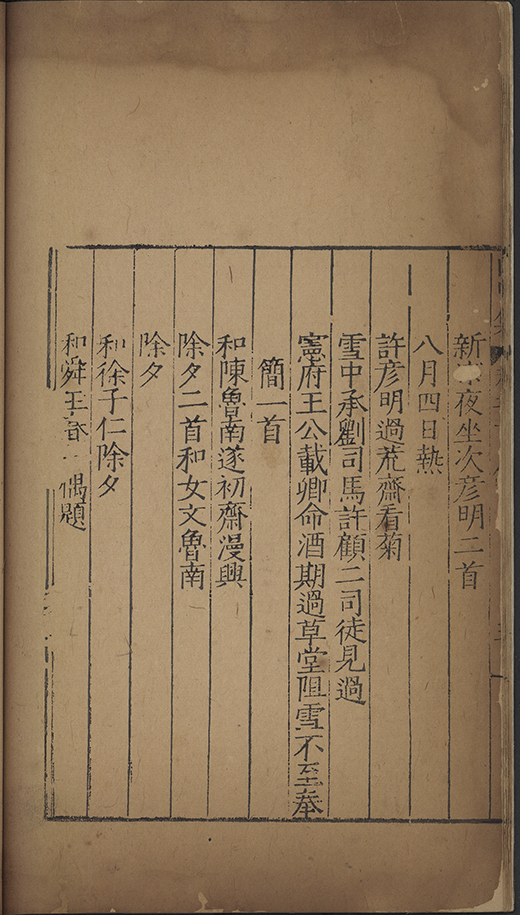 新夜坐次彦明二首
八月四日熱
許彦明過荒齋看菊
雪中承劉司馬許顧二司徒見過
憲府王公載卿命酒期過草堂阻雪不至奉
簡一首
和陳魯南遂初齋漫興
除夕二首和女文魯南
除夕
和徐子仁除夕
和舜王偶題